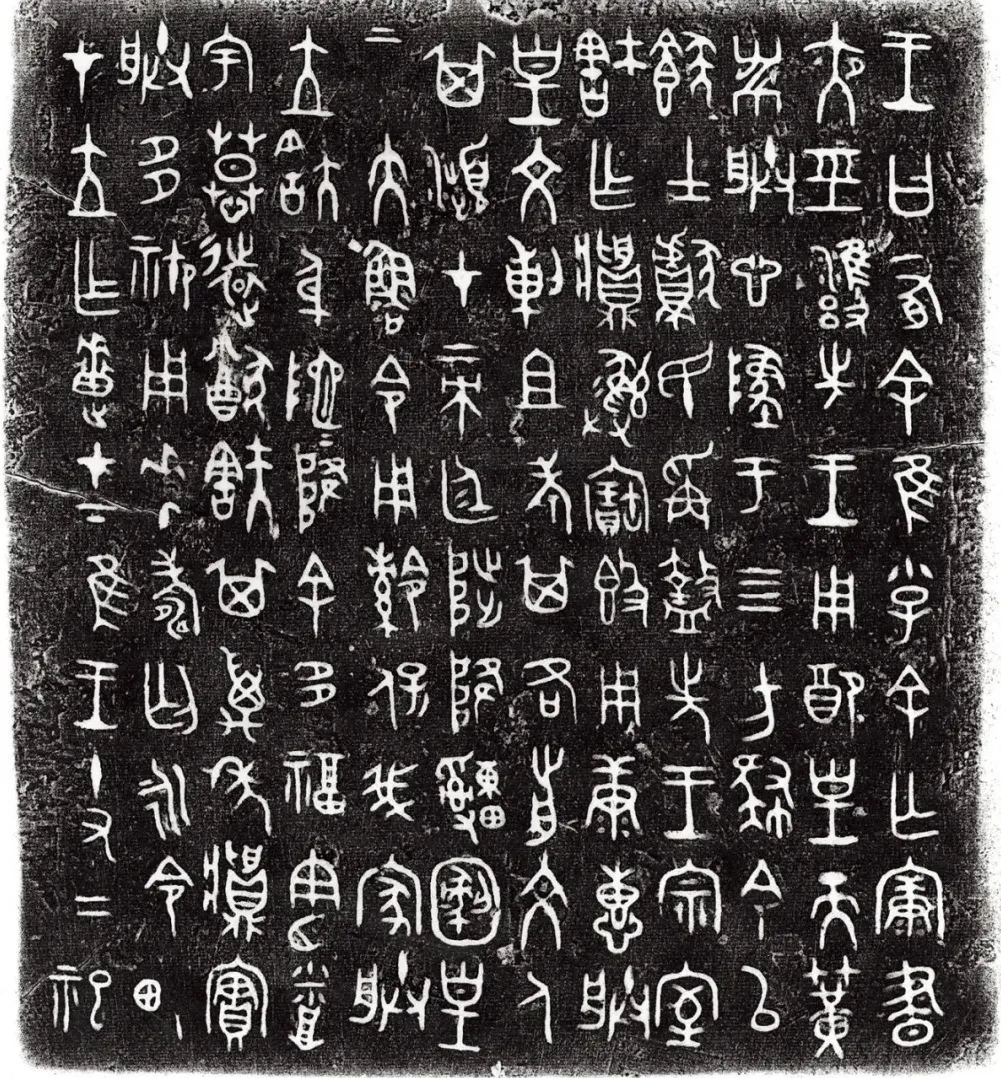 王曰有余隹小子余亡康晝
夜巠雝先王用配皇天黃
黹朕心墜于四方肆余以
士獻民爯盩先王宗室
㝬乍𪔉彝寶簋用康惠朕
皇文剌且考其各前文人
其瀕才帝廷陟降䌛皇
帝大魯令用䵼保我家朕
立㝬身阤阤降余多福憲烝
宇慕遠猷㝬其萬年𪔉實
朕多禦用𠦪壽匄永令畯
才立乍疐才下隹王十又二祀